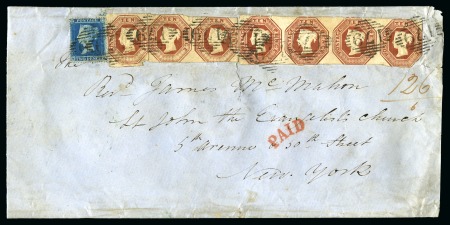 The
Revd James McMahon
St John the Evangelist's church
5th avenue & 50th Street
New York
PAID